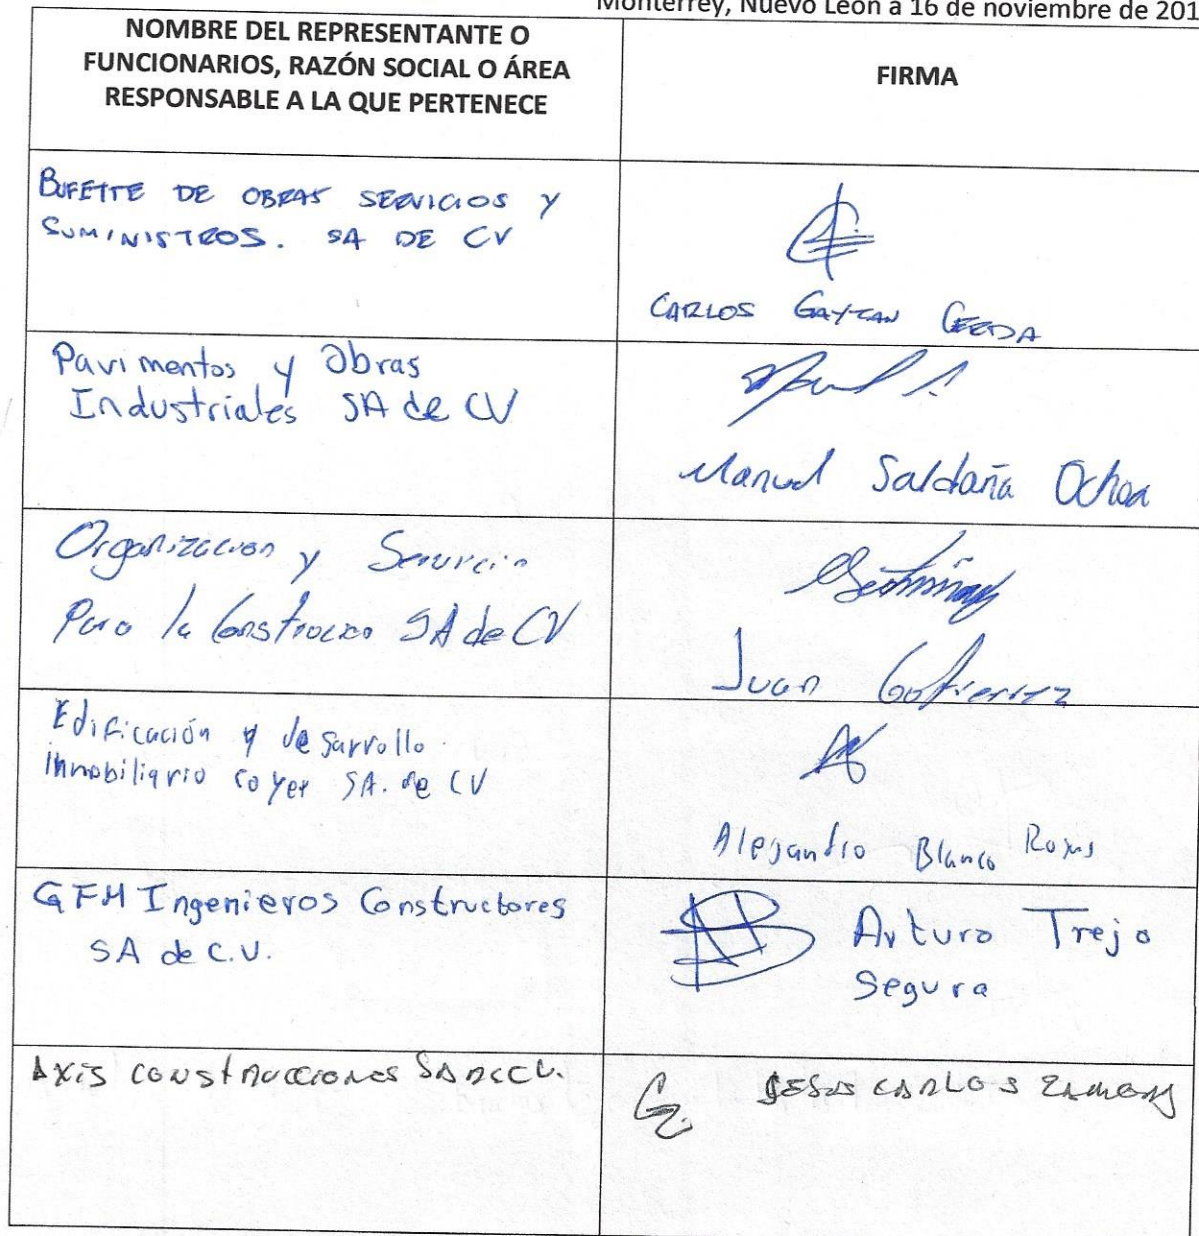 Monterrey, Nuevo León a 16 de noviembre de 201
NOMBRE DEL REPRESENTANTE O
FUNCIONARIOS, RAZÓN SOCIAL O ÁREA
RESPONSABLE A LA QUE PERTENECE
FIRMA
BUFETTE DE OBRAS SERVICIOS Y
SUMINISTROS. SA DE CV
CARLOS GAYTAN CERDA
Pavimentos y Obras
Industriales SA de CV
Manuel Saldaña Ochoa
Organización y Servicio
Para la Construccion SA de CV
Juan Gutierrez
Edificación y desarrollo
inmobiliario royer SA. de CV
Alejandro Blanco Rojas
GFM Ingenieros Constructores
SA de C.V.
Arturo Trejo
Segura
AXIS CONSTRUCCIONES SA DE CV.
JESUS CARLOS ZAMORA